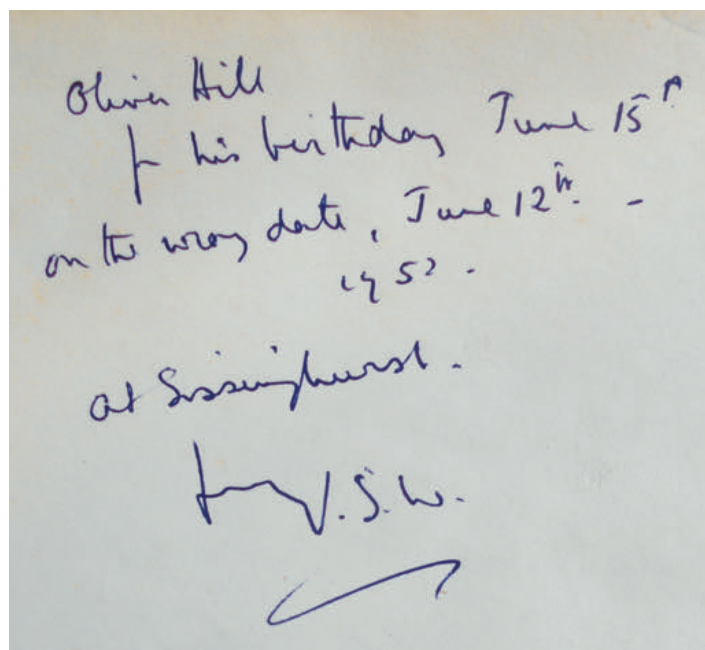 Oliver Hill
for his birthday June 15th
on the wrong date, June 12th. -
at Sissinghurst.
from V.S.W.